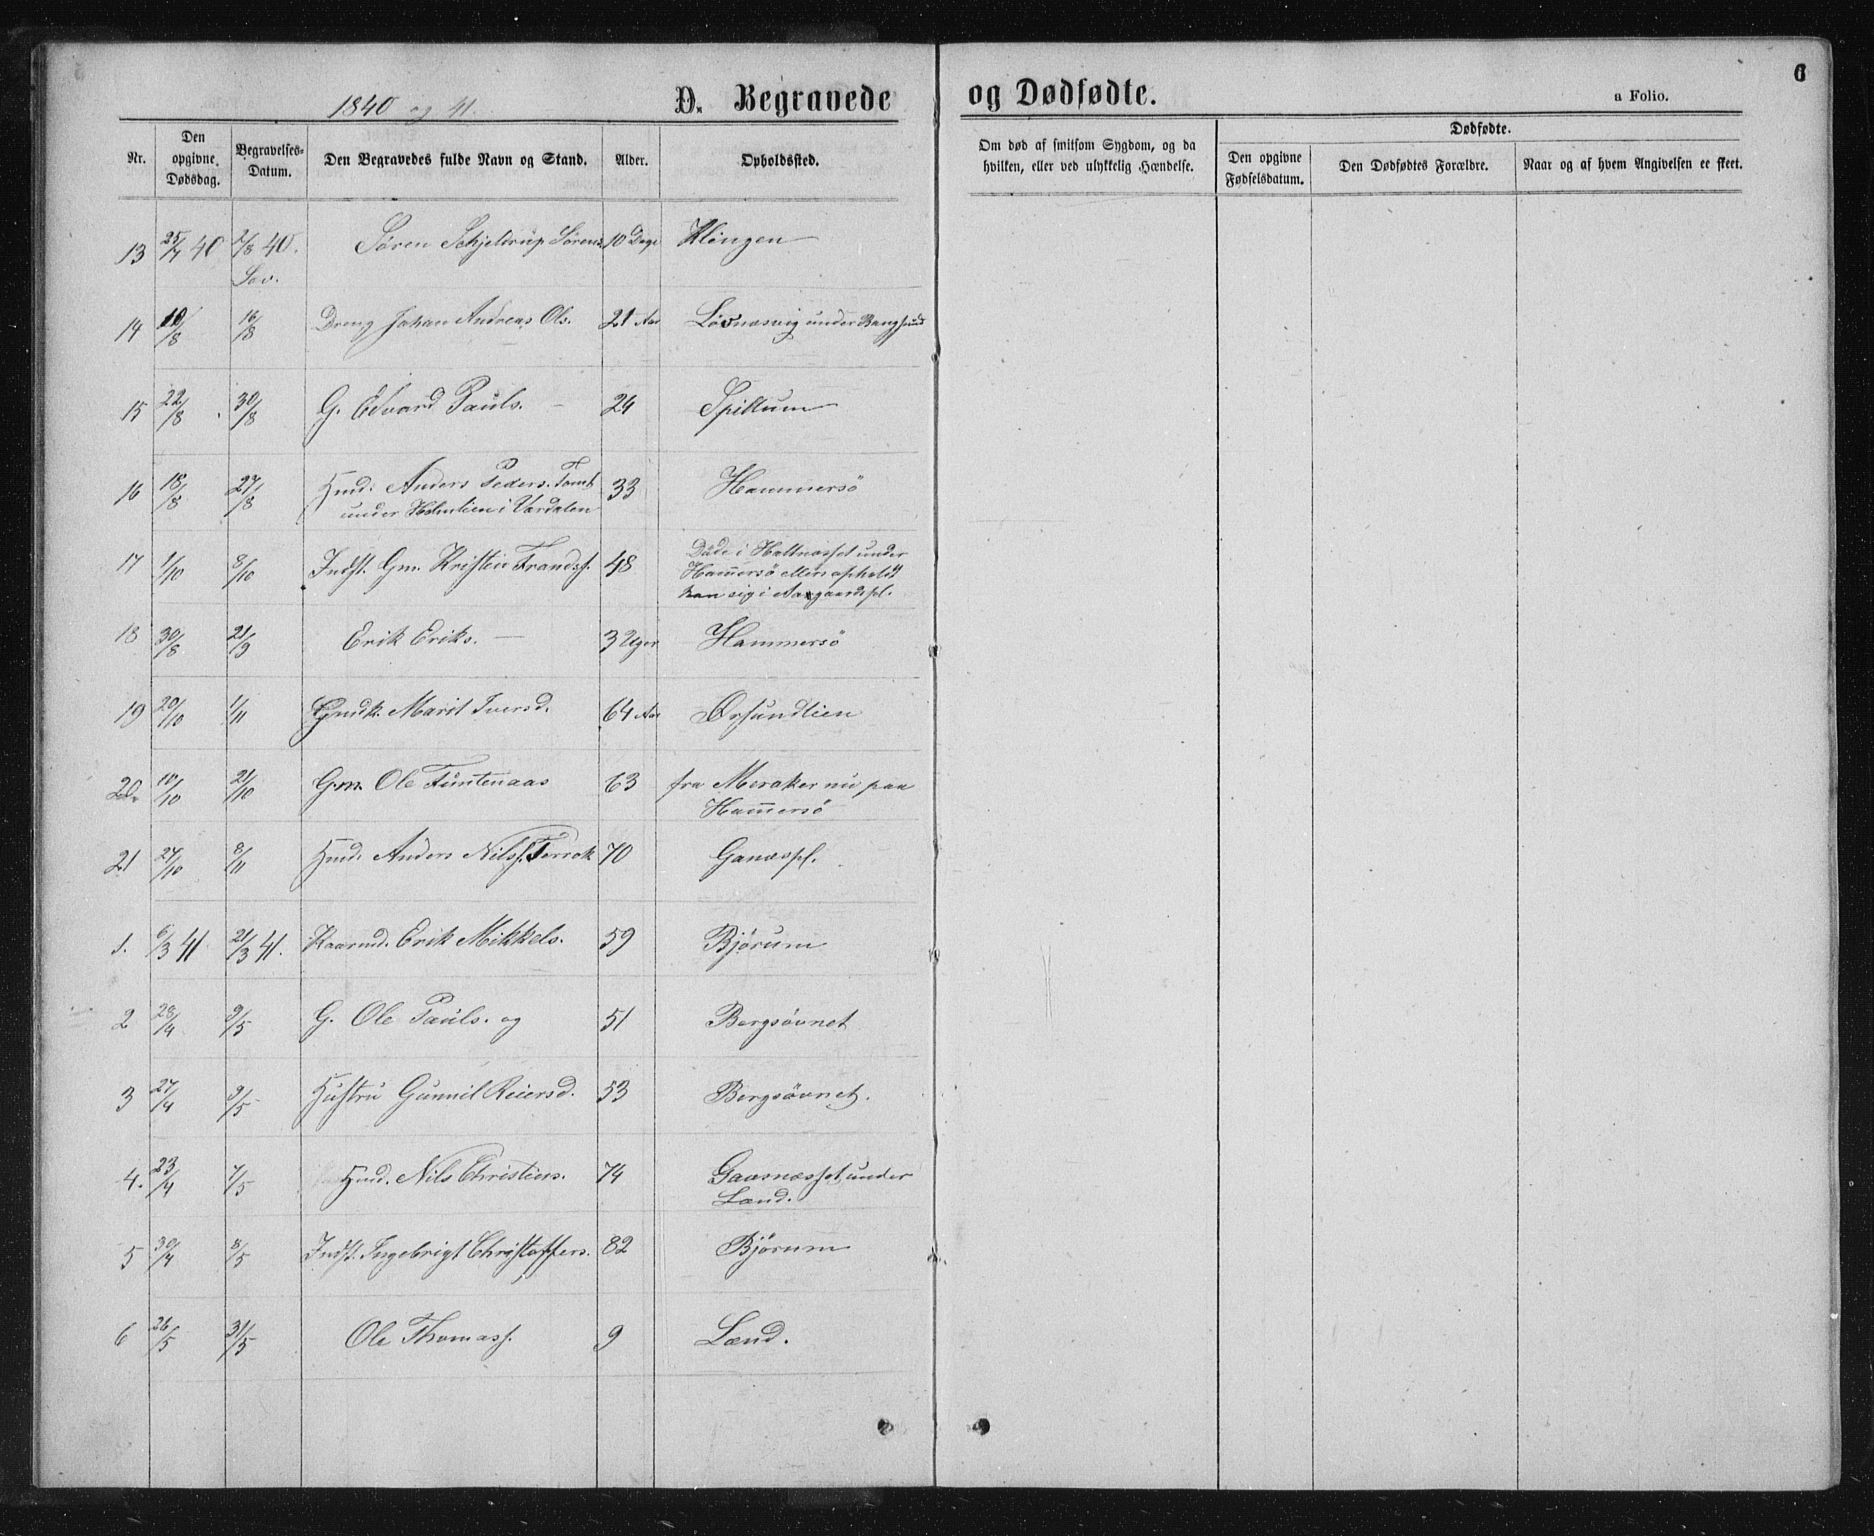 6
1840 og 41.
D. Begravede og Dødfødte.
a Folio.
Nr.
Den opgivne Dødsdag.
Begravelses-Datum.
Den Begravedes fulde Navn og Stand.
Alder.
Opholdssted.
Om død af smitsom Sygdom, og da hvilken, eller ved ulykkelig Hændelse.
Dødfødte.
Den opgivne Fødselsdatum.
Den Dødfødtes Forældre.
Naar og af hvem Angivelsen er skeet.
13 25/7 40 2/8 40. Søren Schjeldrup Sørens. 10 Dage Klingen
Sav.
14 10/8 16/8 Dreng Johan Andreas Ols. 21 Aar Løvnæsvig under Bangsund
15 22/8 30/8 G. Edvard Pauls. 24 Spillum
16 18/8 27/8 Hmd. Anders Peders. Tomt 33 Hammersö
under Holmlien i Værdalen
17 1/10 8/10 Indst. Gm. Kristen Frandss. 48 Døde i Haltnæsset under
Hammersö ellers opholdt
han sig i Aargaardspl.
18 30/8 21/9 Erik Eriks. 3 Uger Hammersö
19 20/10 1/11 Gmdk. Marit Iversd. 64 Aar Ørsundlien
20. 10/10 21/10 Gm. Ole Funtenaas 63 fra Meraker nu paa
Hammersö
21 27/10 8/11 Hmd. Anders Nilss. 70 Ganæspl.
1. 6/3 41 21/3 41. Kaarmd. Erik Mikkels. 59 Bjørum
2 28/4 9/5 G. Ole Pauls. og 51 Bergsövnet
3 27/4 9/5 Hustru Gunnil Reiersd. 53 Bergsövnet.
4. 23/4 7/5 Hmd. Nils Christiens. 74 Gaasnæsset under
Lænd.
5 30/4 8/5 Indst. Ingebrigt Christoffers. 82 Bjørum
6 26/5 31/5 Ole Thomass. 9 Lænd.